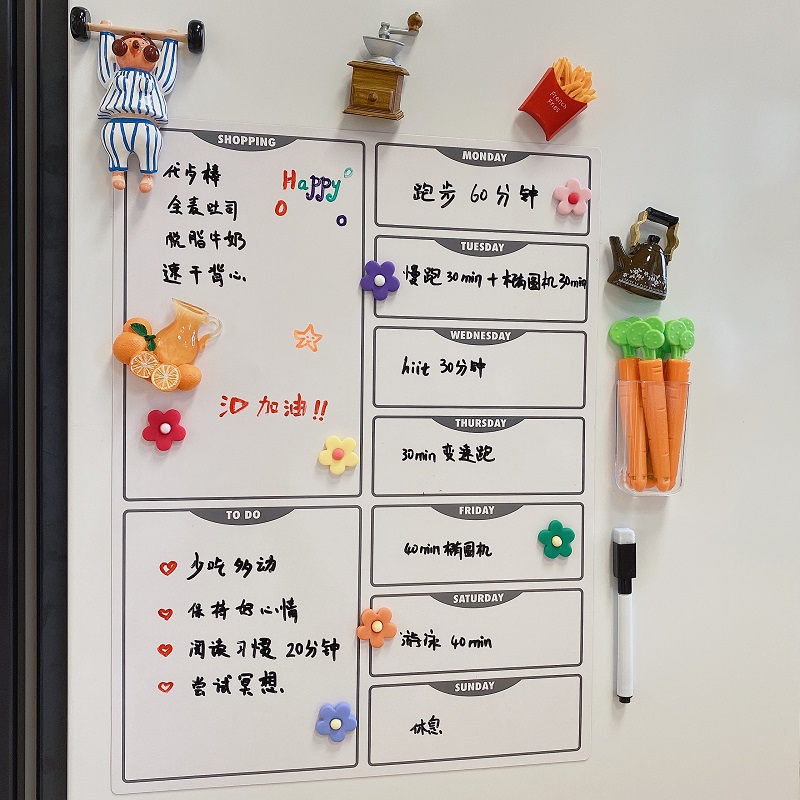 SHOPPING
代占棒
全麦吐司
脱脂牛奶
速干背心
Happy
加油!!
TO DO
少吃多动
保持好心情
阅读习惯 20分钟
尝试冥想.
MONDAY
跑步 60分钟
TUESDAY
慢跑 30min + 椭圆机 30min
WEDNESDAY
hiit 30分钟
THURSDAY
30min 变速跑
FRIDAY
40min 椭圆机
SATURDAY
游泳 40min
SUNDAY
休息
French
Fries